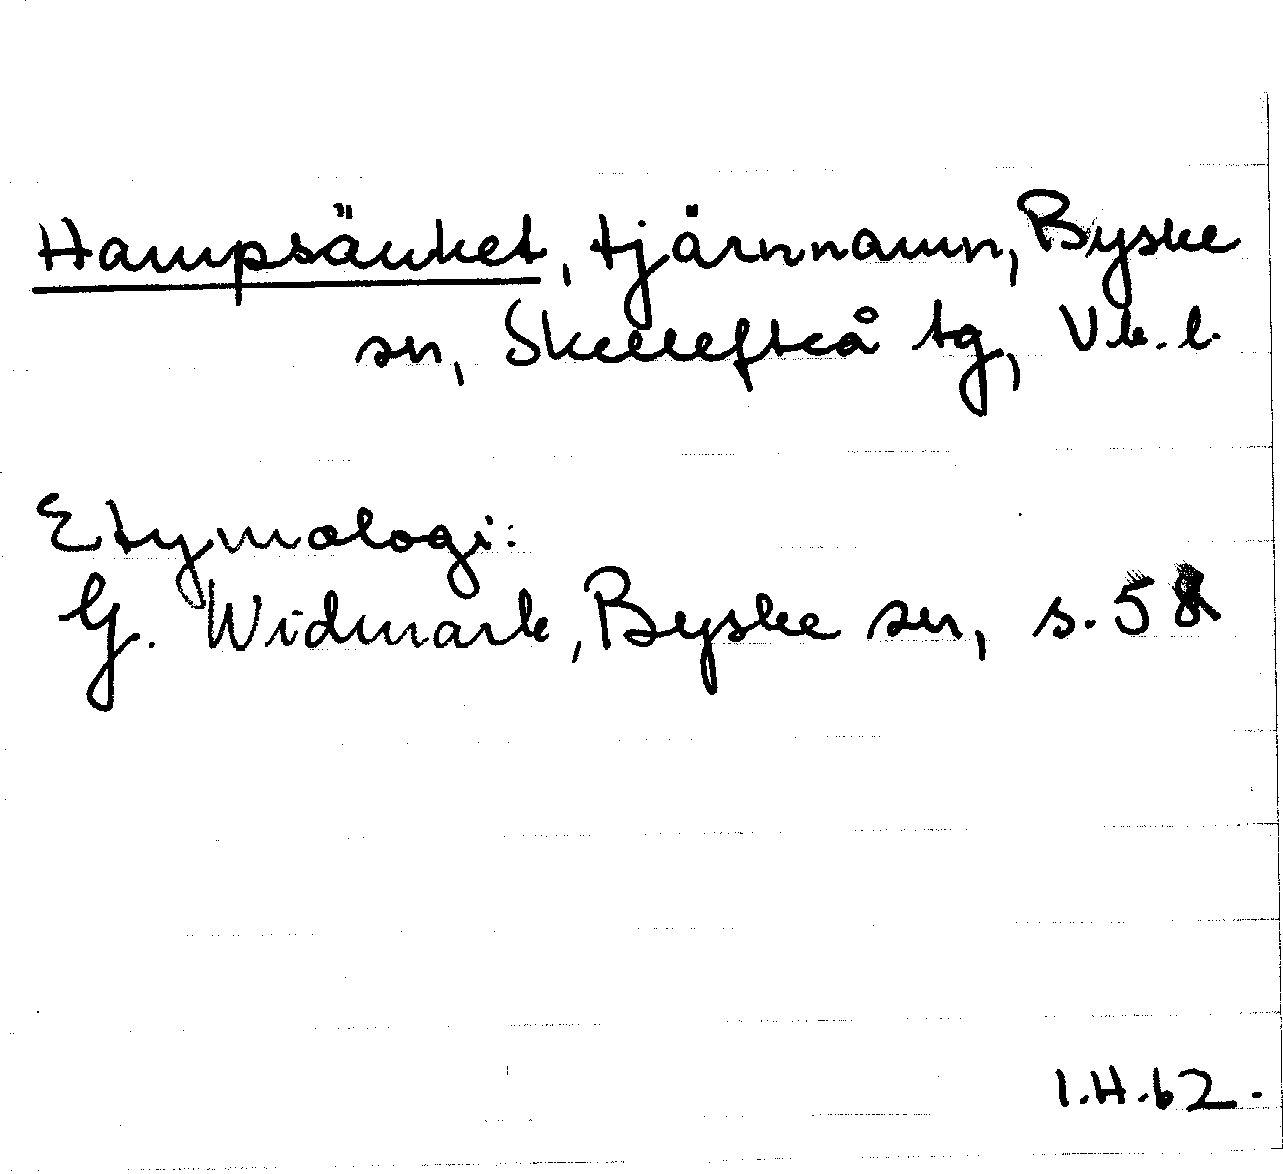 Hampsänket, tjärnnamn, Byske
sn, Skellefteå tg, Vb. l.
Etymologi:
G. Widmark, Byske sn, s. 58
I.H.62.